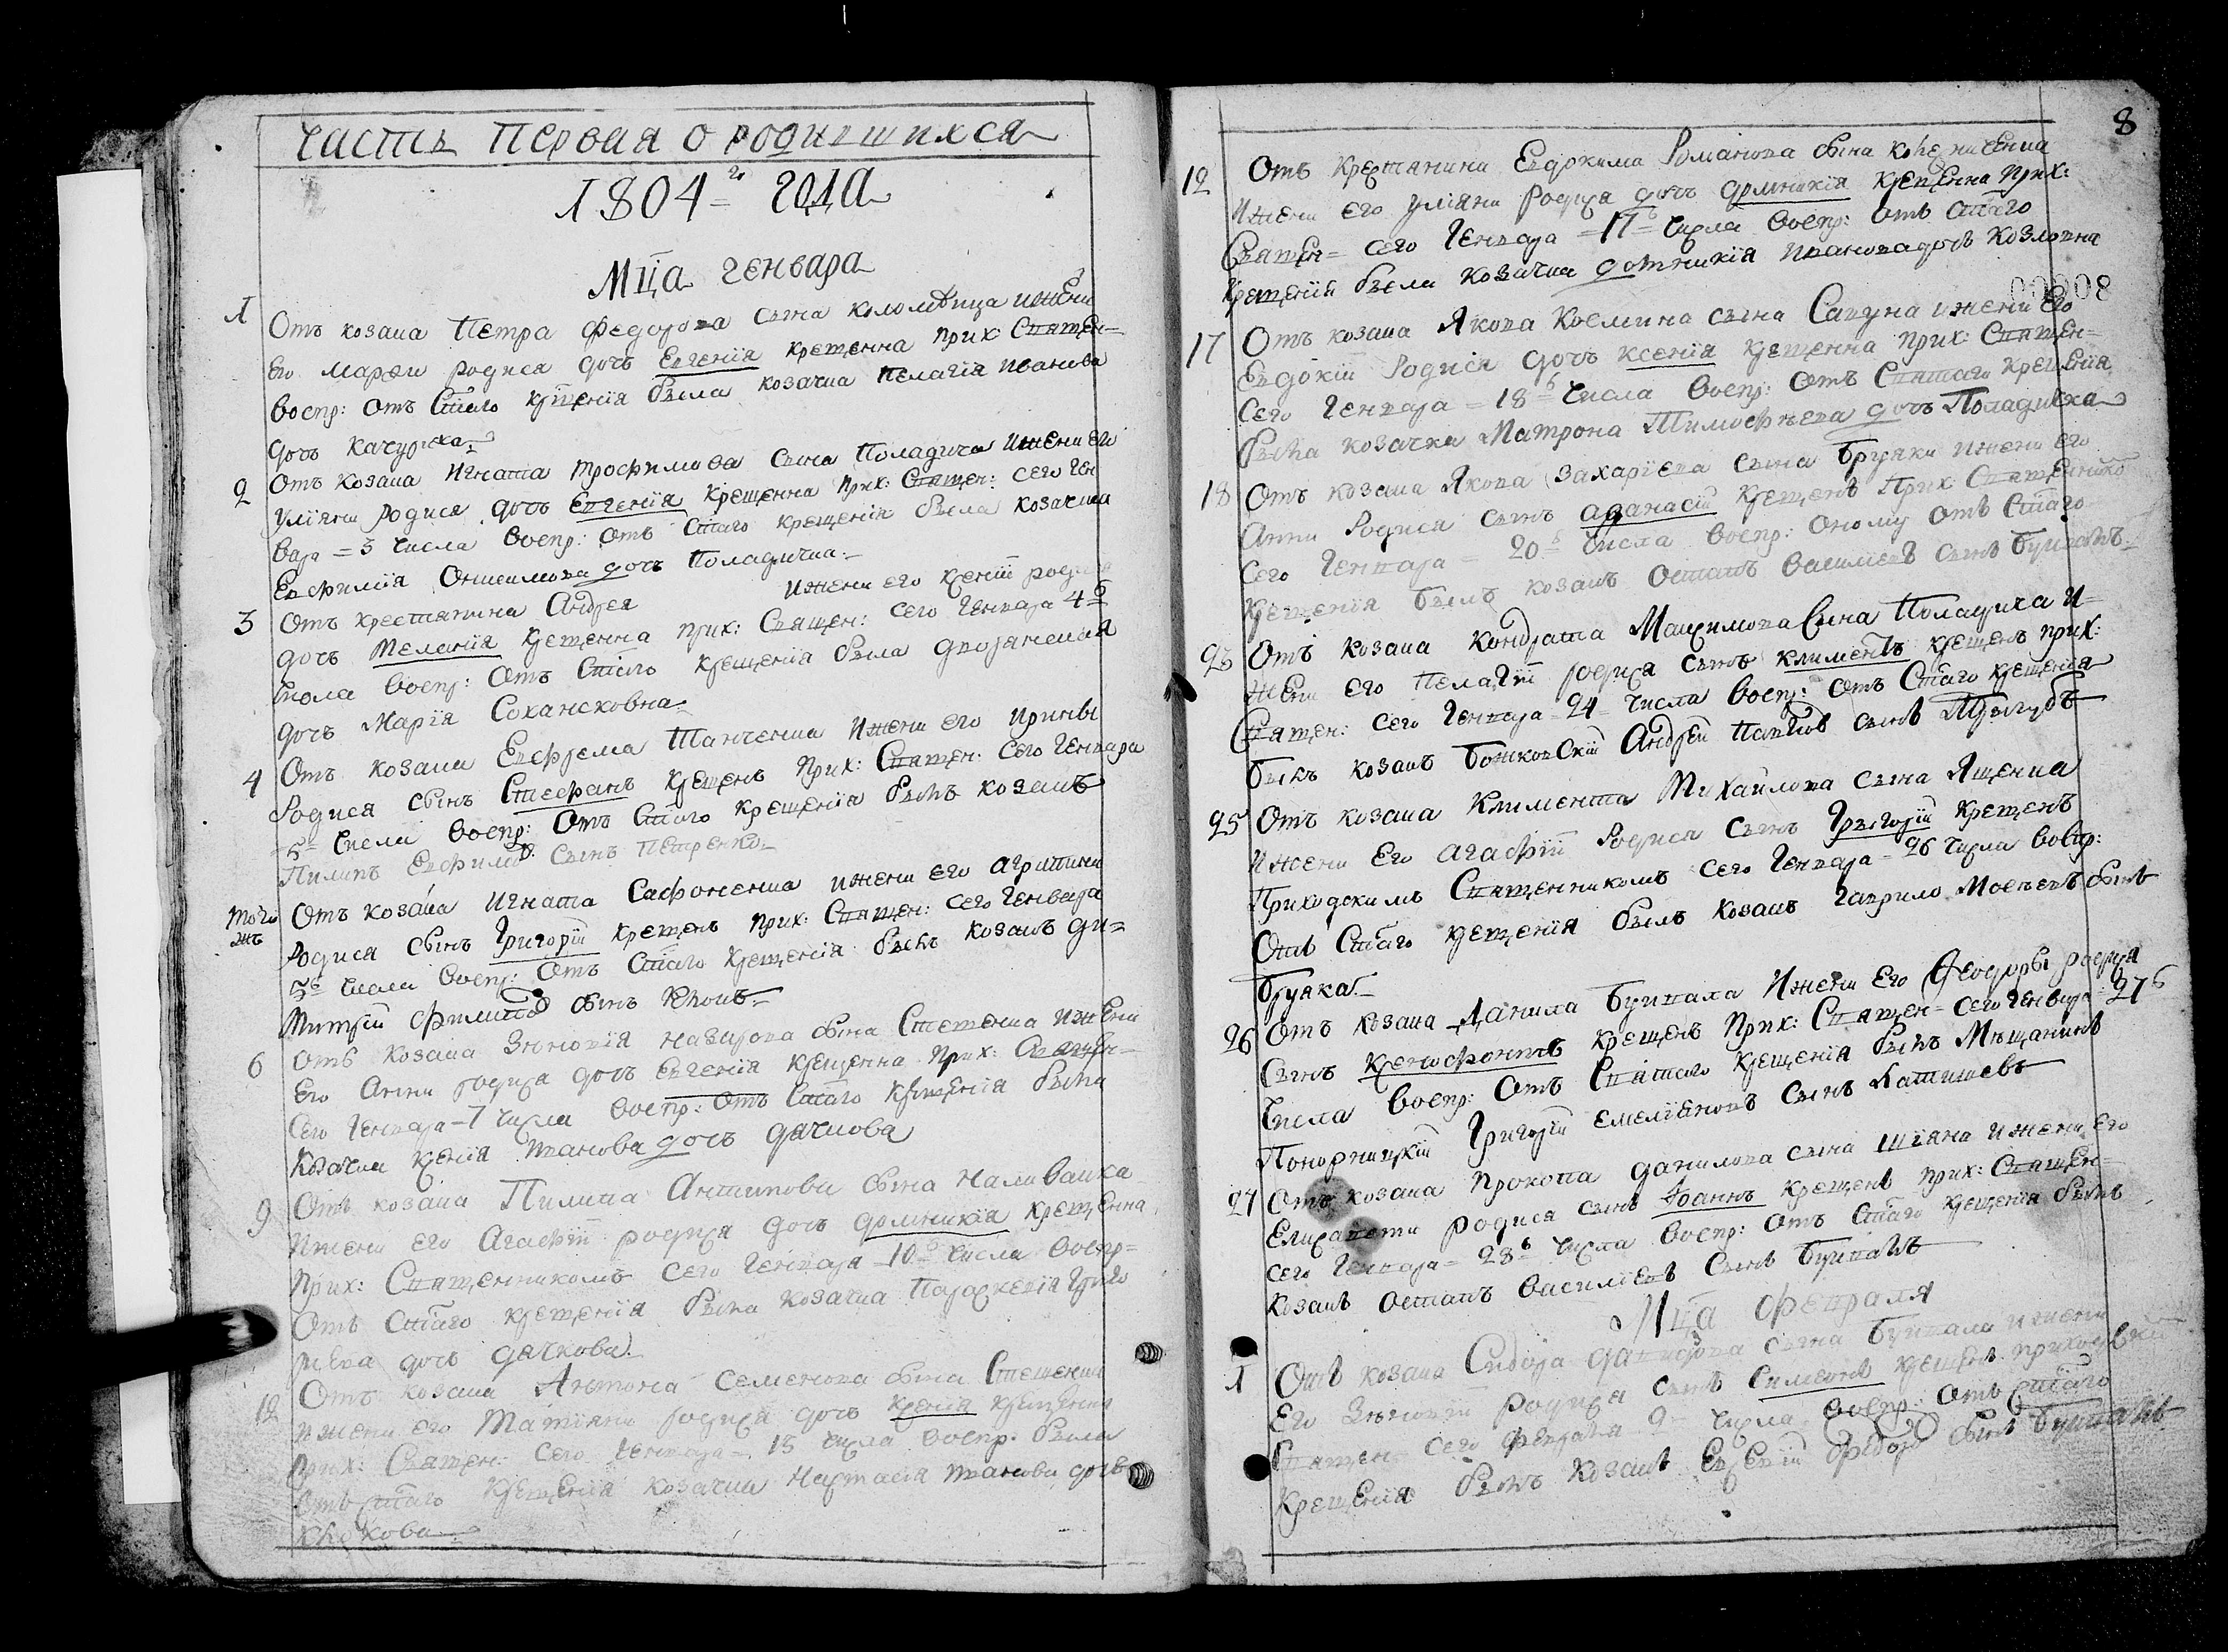 Часть Первая о родившихся
1804 го года
Мц̃а Генвара
1 Отъ козака Петра Федорова сына коломѣйца и жены
Его Марфи родися дочь Евгенїя крещенна прих: Священ=
Воспр: отъ Стаго крщенїя была козачка Пелагїя Иванова
дочь качуриха
2 Отъ козака Игната Трофимова сына Поладича и жени его
Улїяни родися дочь Евгенїя крещенна прих: Священ: сего Ген
вара = 3 числа Воспр: отъ Стаго крещенїя была козачка
Евфимїя Онисимова дочь Поладичка
3 Отъ крестянина Андрея и жени его Ксенїи родися
дочь Меланїя крещенна прих: Священ: сего Генвара 4 б
числа Воспр: отъ Стаго крещенїя была дворянская
дочь Марїя Сохансковна
4 Отъ козака Евфрема Танченка и жени его Ирины
Родися сынъ Стефанъ крещенъ прих: Священ: сего Генвара
5 числа Воспр: отъ Стаго крещенїя былъ козакъ
Пилипъ сынъ Петренко
того жъ Отъ козака Игната Сафоненка и жени его Агрипини
Родися сынъ Григорїй крещенъ прих: Священ: сего Генвара
5 б числа Воспр: отъ Стаго крещенїя былъ козакъ Ди=
митрїй Филиповъ сынъ
6 Отъ козака Зѣновїя Назарова сына Стеценка и жени
Его Анни родися дочь Евгенїя крещенна прих: Священ=
Сего Генвара = 7 числа Воспр: отъ Стаго крещенїя была
Козачка Ксенїя Иванова дочь Дячкова
9 Отъ козака Пилипа Антипова сына Наливайка
и жени его Агафїи родися дочь Домникїя крещенна
прих: Священникомъ сего Генвара = 10 б числа Воспр=
Отъ Стаго крещенїя была козачка Параскевїя Григо
рїева дочь Дячкова
12 Отъ козака Антона Семенова сына Стеценка
и жени его Татїяни родися дочь Ксенїя крещенна
прих: Священ: сего Генвара = 13 числа Воспр: была
Отъ Стаго крещенїя козачка Настасїя Иванова дочь
8
12 Отъ крестянина Евдокима Романова сына
и жени его Улїяни родися дочь Домникїя крещенна прих:
Священ= сего Генвара = 17 б числа Воспр: отъ Стаго
крещенїя была козачка Домникїя Иванова дочь Козловна
00008
17 Отъ козака Якова Космина сына Сапуна и жени его
Евдокїи родися дочь Ксенїя крещенна прих: Священ=
Сего Генвара = 18 б числа Воспр: отъ Святаго крещенїя
была козачка Матрона Тимофѣева дочь Поладичка
18 Отъ козака Якова Захарїева сына Бруяки и жени его
Анни родися сынъ Афанасїй крещенъ прих: Священнико
Сего Генвара = 20 б числа Воспр: оному отъ Стаго
крещенїя былъ козакъ Остапъ Василїевъ сынъ Буивалъ
23 Отъ козака Кондрата Максимова сына Поладича и=
жени его Пелагїи родися сынъ Климентъ крещенъ прих:
Священ: сего Генвара = 24 числа Воспр: отъ Стаго крещенїя
былъ козакъ Божковскїй Андрей Павловъ сынъ
25 Отъ козака Климента Михайлова сына Ященка
и жени его Агафїи родися сынъ Григорїй крещенъ
Приходскимъ Священникомъ сего Генвара = 26 числа Воспр:
Отъ Стаго крещенїя былъ козакъ Гаврило Мосѣевъ сынъ
Бруяка
26 Отъ козака Данила Буивала и жени его Феодоры родися
Сынъ Ксенофонтъ крещенъ прих: Священ= сего Генвара = 27 б
числа Воспр: отъ Святаго крещенїя былъ Мѣщанинъ
Понорницкїй Григорїй Емелїяновъ сынъ Латишевъ
27 Отъ козака Прокопа Данилова сына Шїяна и жени его
Елисавети родися сынъ Іоаннъ крещенъ прих: Священ=
сего Генвара = 28 б числа Воспр: отъ Стаго крещенїя былъ
козакъ Остапъ Василїевъ сынъ Буивалъ
Мц̃а Февраля
1 Отъ козака Сидора сына Буивала и жени
Его Зѣновїи родися сынъ Симеонъ крещенъ приходскїй
Священ= сего Февраля 2 = числа Воспр: отъ Стаго
крещенїя былъ козакъ Евсевїй Федоръ сынъ Буивалъ